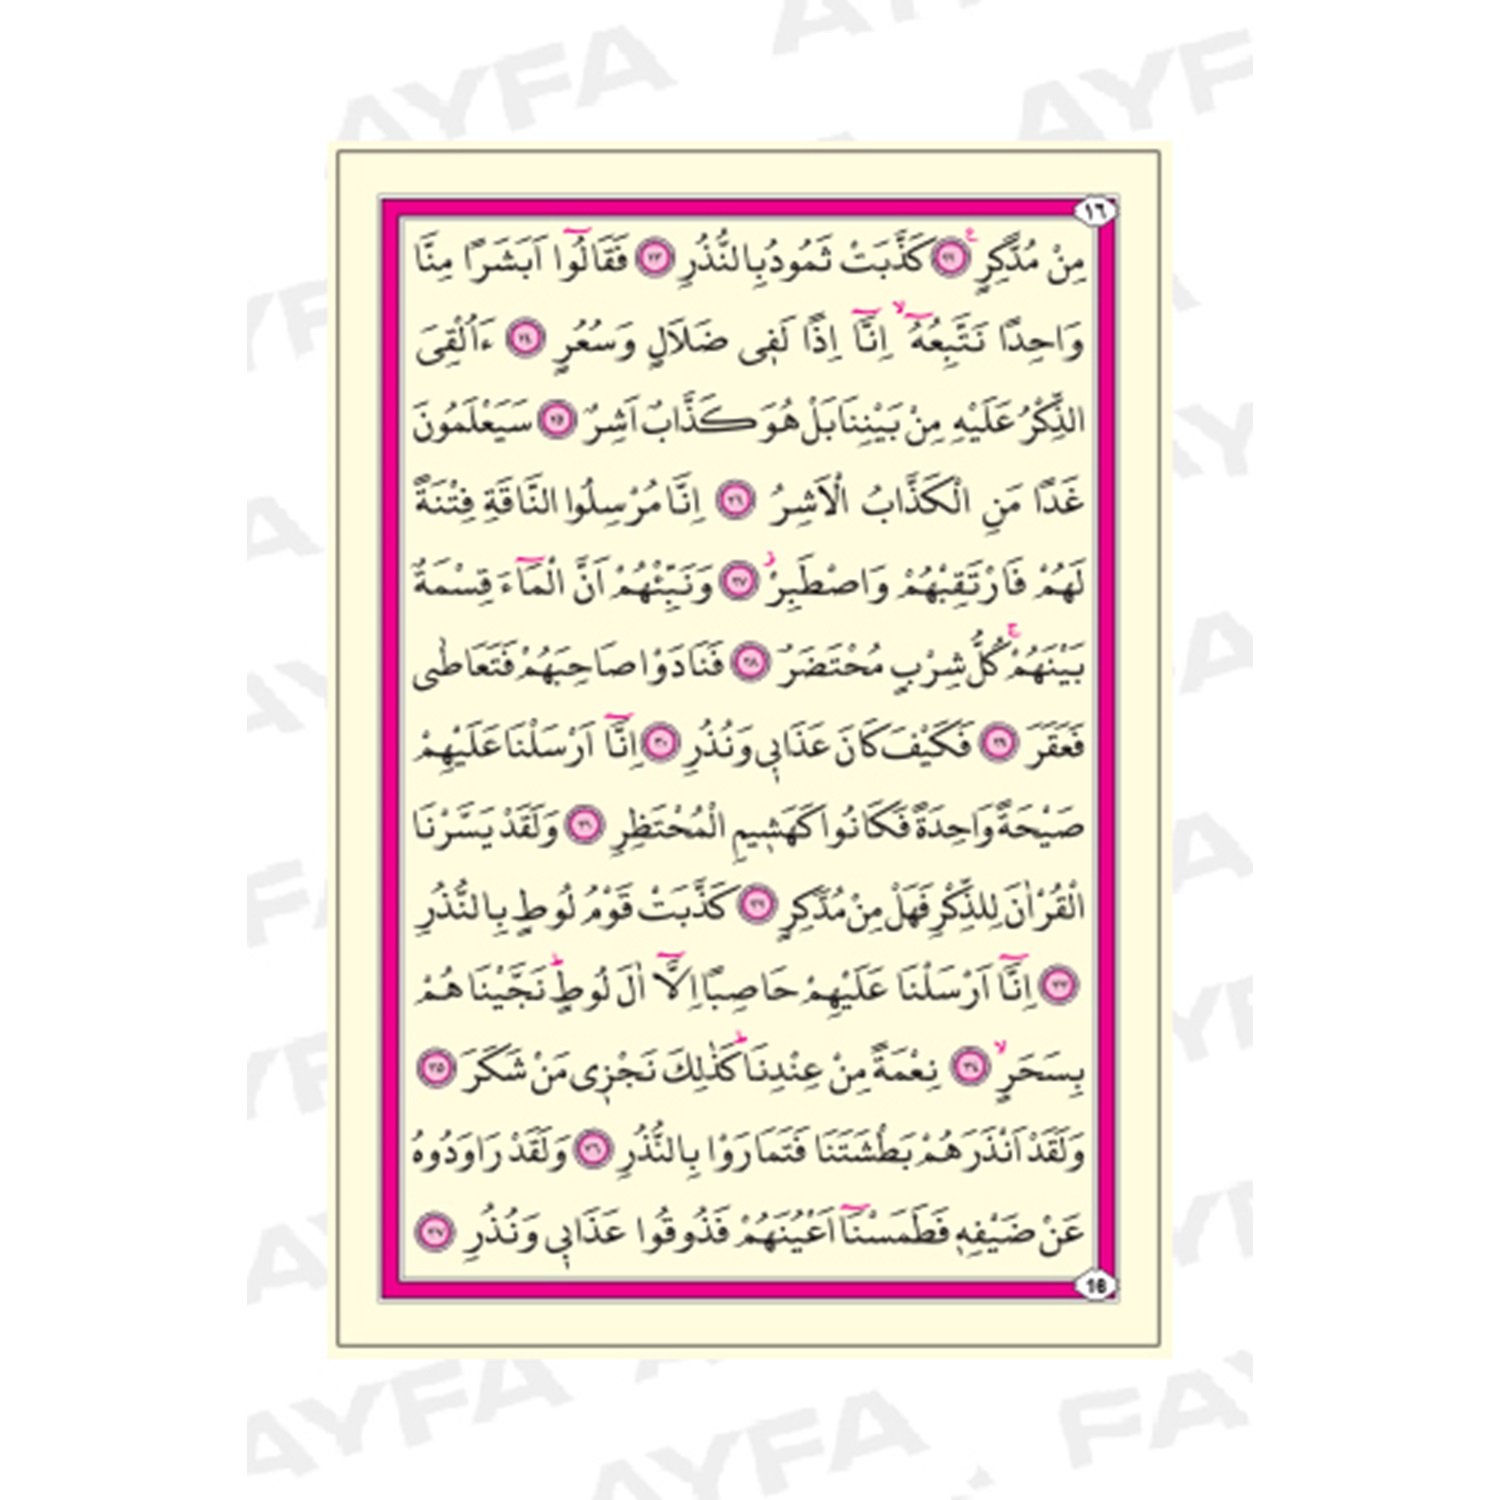 AYFA AYFA AYFA
١٦
مِنْ مُدَّكِرٍ ﴿٢٢﴾ كَذَّبَتْ ثَمُودُ بِالنُّذُرِ ﴿٢٣﴾ فَقَالُٓوا اَبَشَرًا مِنَّا
وَاحِدًا نَتَّبِعُهُٓۙ اِنَّٓا اِذًا لَفٖى ضَلَالٍ وَسُعُرٍ ﴿٢٤﴾ ءَاُلْقِىَ
الذِّكْرُ عَلَيْهِ مِنْ بَيْنِنَا بَلْ هُوَ كَذَّابٌ اَشِرٌ ﴿٢٥﴾ سَيَعْلَمُونَ
غَدًا مَنِ الْكَذَّابُ الْاَشِرُ ﴿٢٦﴾ اِنَّا مُرْسِلُوا النَّاقَةِ فِتْنَةً
لَهُمْ فَارْتَقِبْهُمْ وَاصْطَبِرْ ﴿٢٧﴾ وَنَبِّئْهُمْ اَنَّ الْمَٓاءَ قِسْمَةٌ
بَيْنَهُمْۚ كُلُّ شِرْبٍ مُحْتَضَرٌ ﴿٢٨﴾ فَنَادَوْا صَاحِبَهُمْ فَتَعَاطٰى
فَعَقَرَ ﴿٢٩﴾ فَكَيْفَ كَانَ عَذَابٖى وَنُذُرِ ﴿٣٠﴾ اِنَّٓا اَرْسَلْنَا عَلَيْهِمْ
صَيْحَةً وَاحِدَةً فَكَانُوا كَهَشٖيمِ الْمُحْتَظِرِ ﴿٣١﴾ وَلَقَدْ يَسَّرْنَا
الْقُرْاٰنَ لِلذِّكْرِ فَهَلْ مِنْ مُدَّكِرٍ ﴿٣٢﴾ كَذَّبَتْ قَوْمُ لُوطٍ بِالنُّذُرِ
﴿٣٣﴾ اِنَّٓا اَرْسَلْنَا عَلَيْهِمْ حَاصِبًا اِلَّٓا اٰلَ لُوطٍؕ نَجَّيْنَاهُمْ
بِسَحَرٍۙ ﴿٣٤﴾ نِعْمَةً مِنْ عِنْدِنَاؕ كَذٰلِكَ نَجْزٖى مَنْ شَكَرَ ﴿٣٥﴾
وَلَقَدْ اَنْذَرَهُمْ بَطْشَتَنَا فَتَمَارَوْا بِالنُّذُرِ ﴿٣٦﴾ وَلَقَدْ رَاوَدُوهُ
عَنْ ضَيْفِهٖ فَطَمَسْنَٓا اَعْيُنَهُمْ فَذُوقُوا عَذَابٖى وَنُذُرِ ﴿٣٧﴾
16
AYFA AYFA FAY